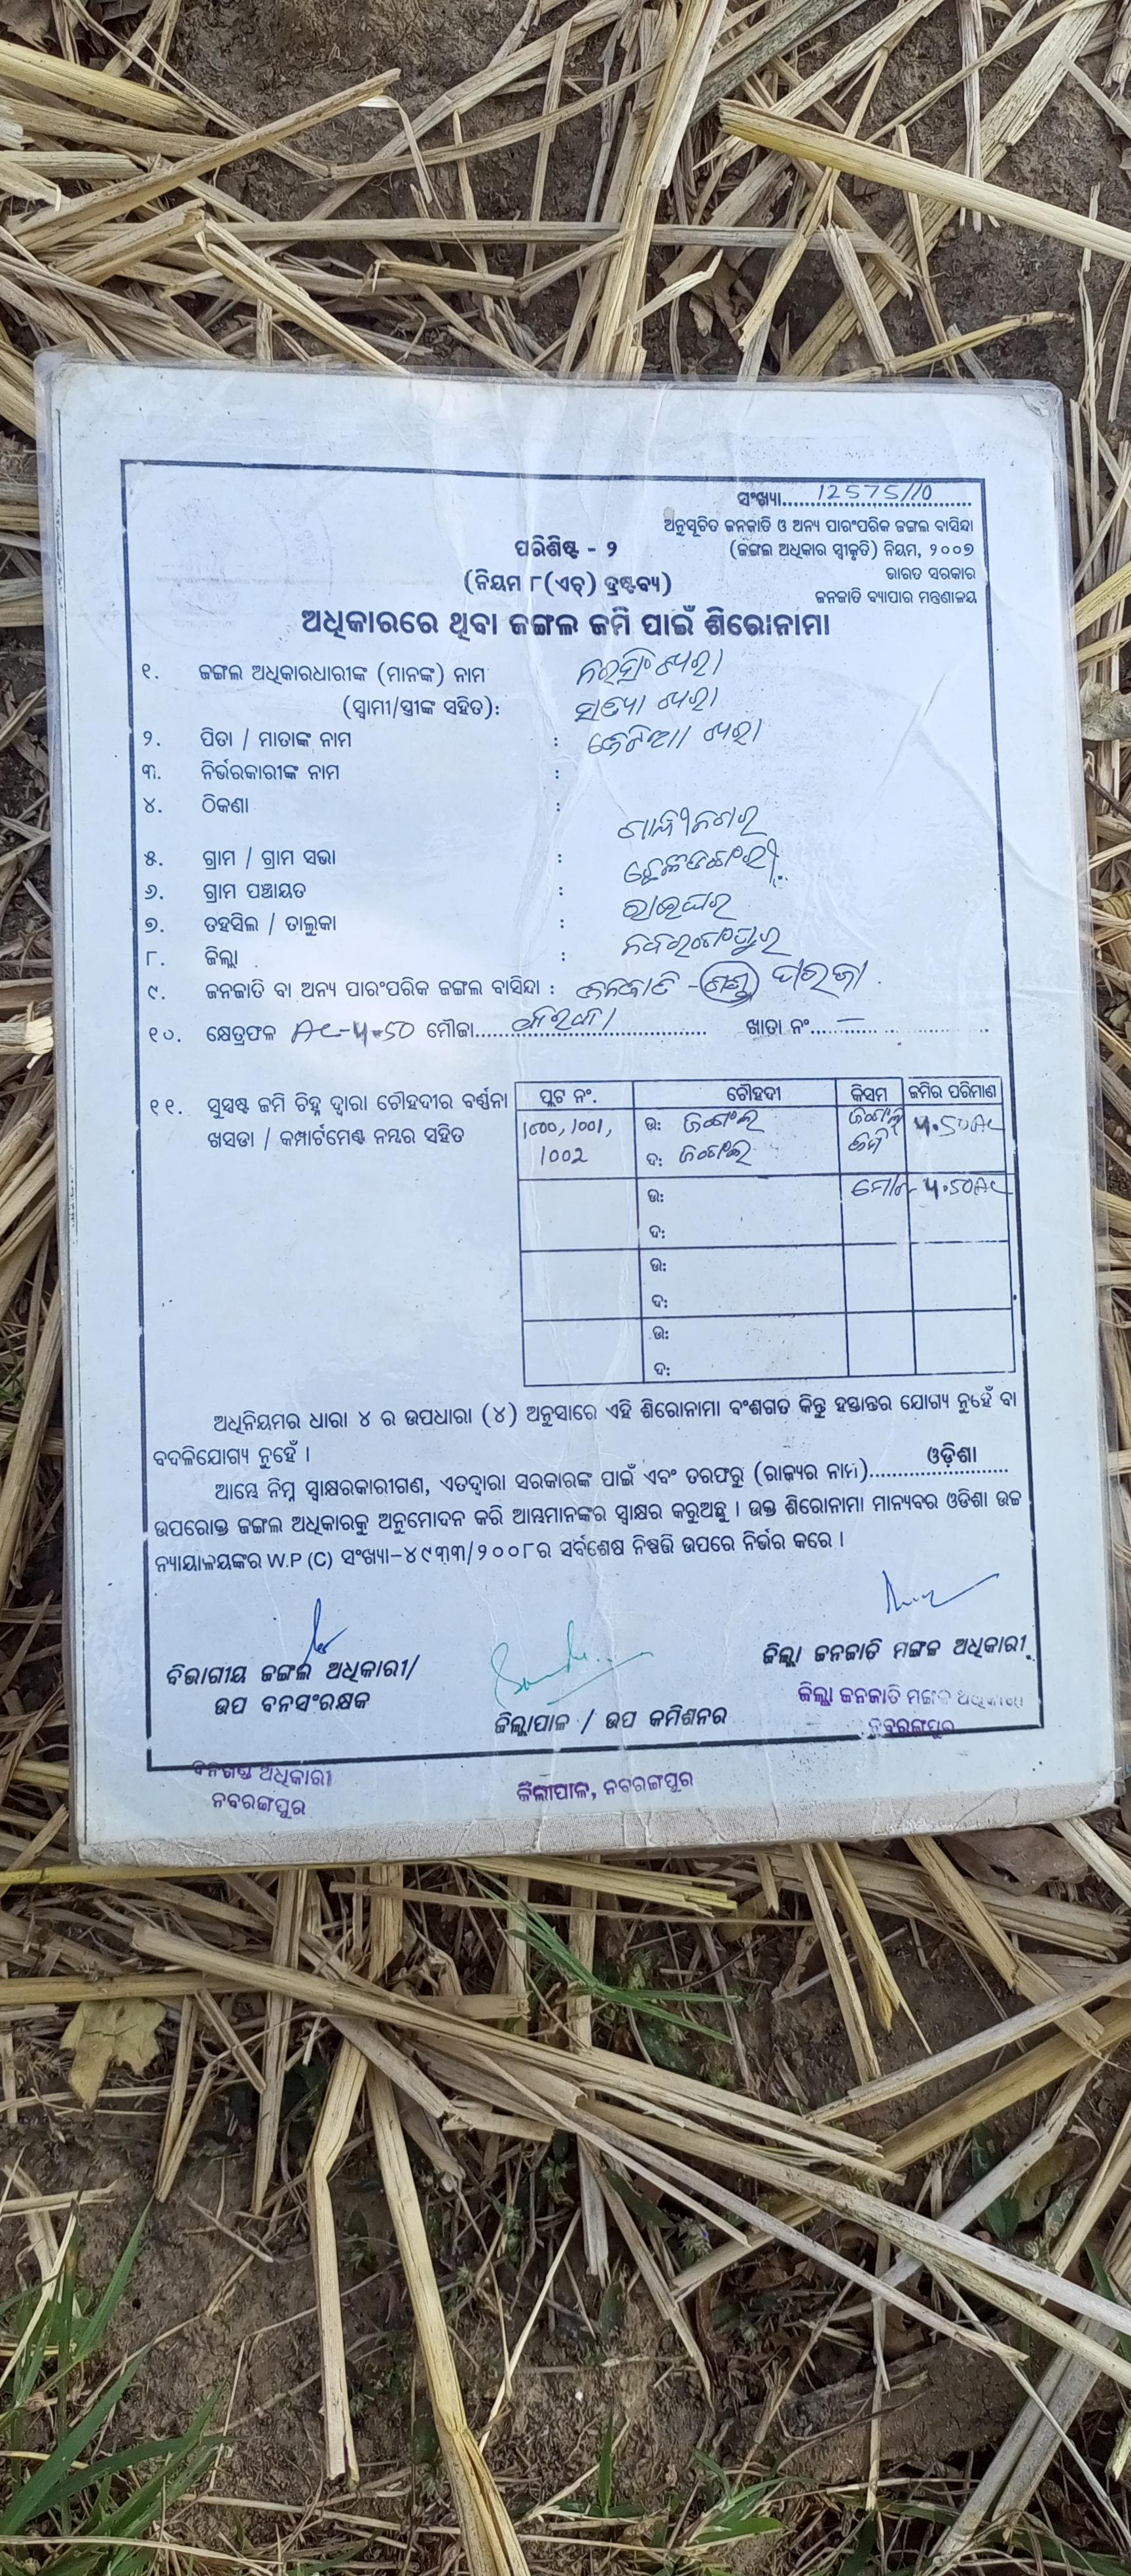 ସଂଖ୍ୟା..........12575/10..........
ଅନୁସୂଚିତ ଜନଜାତି ଓ ଅନ୍ୟ ପାରଂପରିକ ଜଙ୍ଗଲ ବାସିନ୍ଦା
(ଜଙ୍ଗଲ ଅଧିକାର ସ୍ୱୀକୃତି) ନିୟମ, ୨୦୦୭
ଭାରତ ସରକାର
ଜନଜାତି ବ୍ୟାପାର ମନ୍ତ୍ରଣାଳୟ
ପରିଶିଷ୍ଟ - ୨
(ନିୟମ ୮(ଏଚ୍) ଦ୍ରଷ୍ଟବ୍ୟ)
ଅଧିକାରରେ ଥିବା ଜଙ୍ଗଲ ଜମି ପାଇଁ ଶିରୋନାମା
୧. ଜଙ୍ଗଲ ଅଧିକାରଧାରୀଙ୍କ (ମାନଙ୍କ) ନାମ
(ସ୍ୱାମୀ/ସ୍ତ୍ରୀଙ୍କ ସହିତ):
୨. ପିତା / ମାତାଙ୍କ ନାମ :
୩. ନିର୍ଭରକାରୀଙ୍କ ନାମ :
୪. ଠିକଣା :
୫. ଗ୍ରାମ / ଗ୍ରାମ ସଭା : ଗାନ୍ଧୀନଗର
୬. ଗ୍ରାମ ପଞ୍ଚାୟତ :
୭. ତହସିଲ / ତାଲୁକା : ରାଇଘର
୮. ଜିଲ୍ଲା : ନବରଂଗପୁର
୯. ଜନଜାତି ବା ଅନ୍ୟ ପାରଂପରିକ ଜଙ୍ଗଲ ବାସିନ୍ଦା : ଜନଜାତି - ଗଣ୍ଡ ପରଜା
୧୦. କ୍ଷେତ୍ରଫଳ AC-4.50 ମୌଜା.......... ଖାତା ନଂ..... — .....
୧୧. ସୁସ୍ପଷ୍ଟ ଜମି ଚିହ୍ନ ଦ୍ୱାରା ଚୌହଦୀର ବର୍ଣ୍ଣନା
ଖସଡା / କମ୍ପାର୍ଟମେଣ୍ଟ ନମ୍ବର ସହିତ
ପ୍ଲଟ ନଂ. ଚୌହଦୀ କିସମ ଜମିର ପରିମାଣ
1000, 1001, ଉ: ଜଂଗଲ ଜଂଗଲ 4.50AC
1002 ଦ: ଜଂଗଲ ଜମି
ଉ: ମୋଟ- 4.50AC
ଦ:
ଉ:
ଦ:
ଉ:
ଦ:
ଅଧିନିୟମର ଧାରା ୪ ର ଉପଧାରା (୪) ଅନୁସାରେ ଏହି ଶିରୋନାମା ବଂଶଗତ କିନ୍ତୁ ହସ୍ତାନ୍ତର ଯୋଗ୍ୟ ନୁହେଁ ବା
ବଦଳିଯୋଗ୍ୟ ନୁହେଁ ।
ଆମ୍ଭେ ନିମ୍ନ ସ୍ୱାକ୍ଷରକାରୀଗଣ, ଏତଦ୍ୱାରା ସରକାରଙ୍କ ପାଇଁ ଏବଂ ତରଫରୁ (ରାଜ୍ୟର ନାମ)..........ଓଡ଼ିଶା..........
ଉପରୋକ୍ତ ଜଙ୍ଗଲ ଅଧିକାରକୁ ଅନୁମୋଦନ କରି ଆମ୍ଭମାନଙ୍କର ସ୍ୱାକ୍ଷର କରୁଅଛୁ । ଉକ୍ତ ଶିରୋନାମା ମାନ୍ୟବର ଓଡିଶା ଉଚ୍ଚ
ନ୍ୟାୟାଳୟଙ୍କର W.P (C) ସଂଖ୍ୟା-୪୯୩୩/୨୦୦୮ର ସର୍ବଶେଷ ନିଷ୍ପତ୍ତି ଉପରେ ନିର୍ଭର କରେ ।
ବିଭାଗୀୟ ଜଙ୍ଗଲ ଅଧିକାରୀ/
ଉପ ବନସଂରକ୍ଷକ
ଜିଲ୍ଲାପାଳ / ଉପ କମିଶନର
ଜିଲ୍ଲା ଜନଜାତି ମଙ୍ଗଳ ଅଧିକାରୀ
ଜିଲ୍ଲା ଜନଜାତି ମଙ୍ଗଳ ଅଧିକାରୀ
ନବରଙ୍ଗପୁର
ଅଧିକାରୀ
ନବରଙ୍ଗପୁର
ଜିଲ୍ଲାପାଳ, ନବରଙ୍ଗପୁର